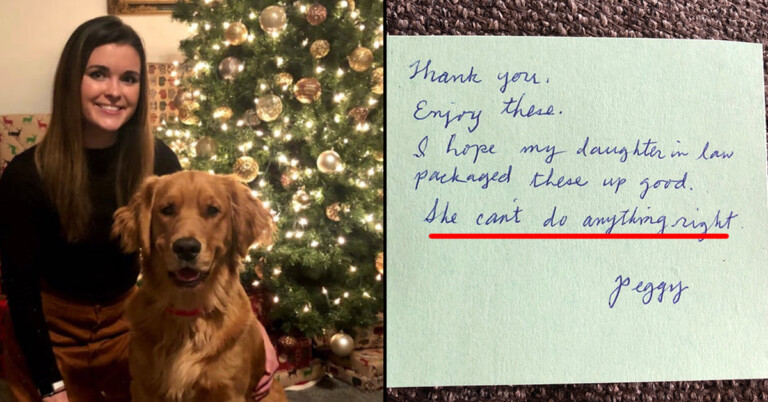 Thank you.
Enjoy these.
I hope my daughter in law
packaged these up good.
She can't do anything right.
Peggy